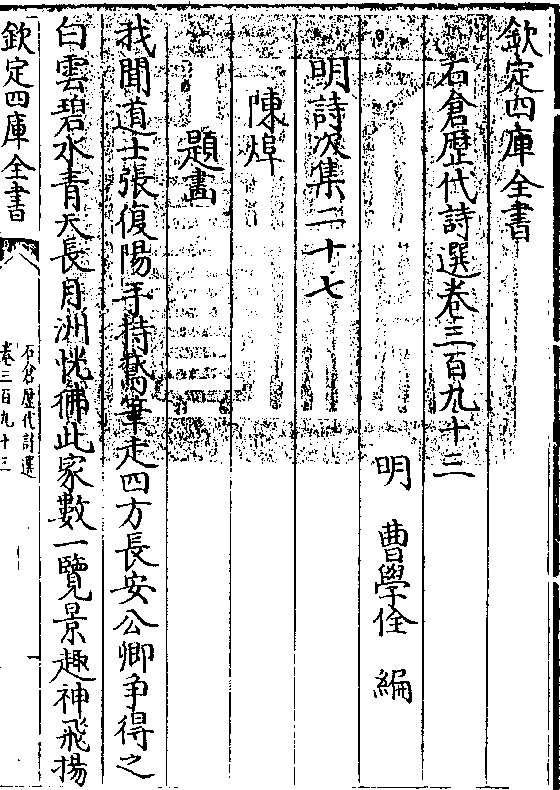 欽定四庫全書
石倉歴代詩選卷三百九十三
明 曹學佺 編
明詩次集二十七
陳煒
題畫
我聞道士張復陽手持鷟筆走四方長安公卿争得之
白雲碧水青天長月洲恍彿此家數一覽景趣神飛揚
欽定四庫全書
石倉歴代詩選
卷三百九十三